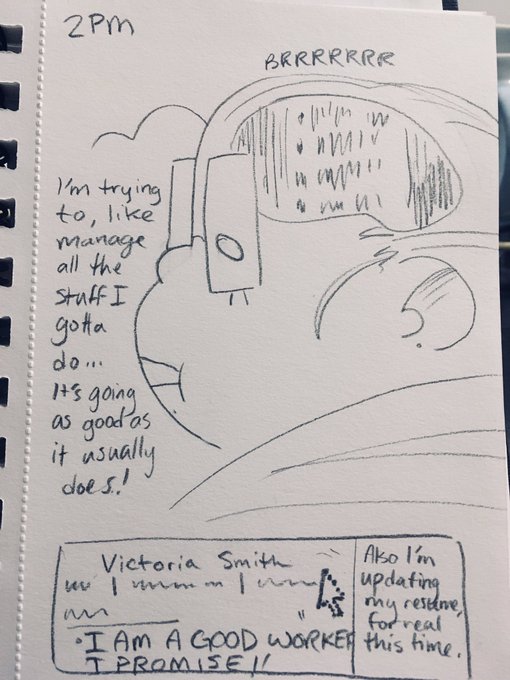 2PM
BRRRRRRR
I'm trying
to, like
manage
all the
stuff I
gotta
do...
It's going
as good as
it usually
does!
Victoria Smith
"I AM A GOOD WORKER
I PROMISE!!
Also I'm
updating
my resume,
for real
this time.